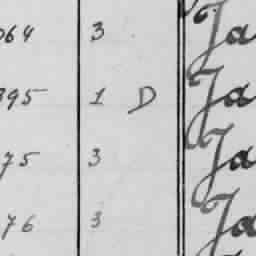 064 3 Ja
895 1 D Ja
75 3 Ja
76 3 Ja